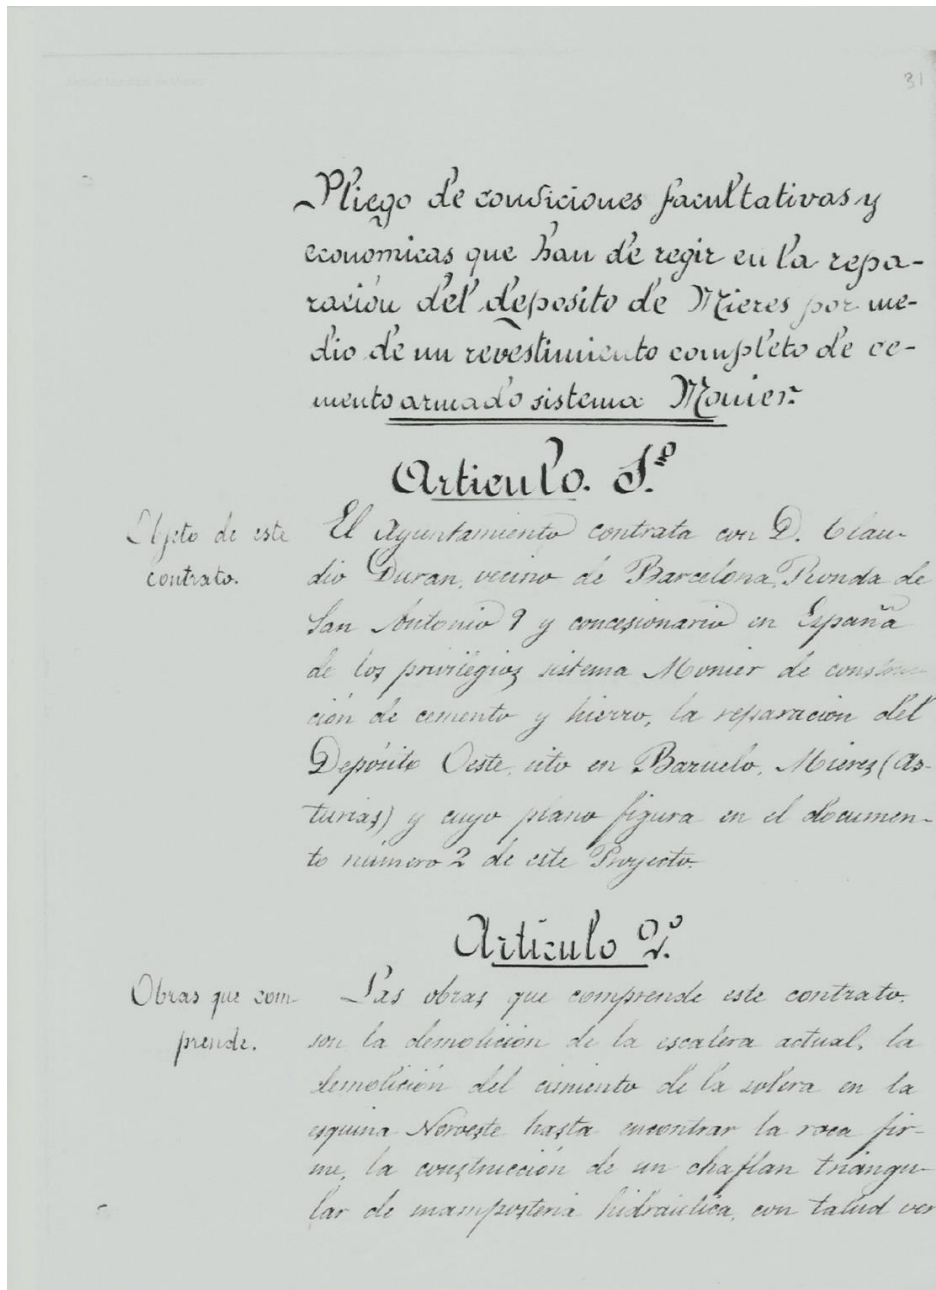 31
Pliego de condiciones facultativas y
economicas que han de regir en la repa-
ración del deposito de Mieres por me-
dio de un revestimiento completo de ce-
mento armado sistema Monier.
Articulo. 1.º
Objeto de este
contrato.
El Ayuntamiento contrata con D. Clau-
dio Duran, vecino de Barcelona, Ronda de
San Antonio 9 y concesionario en España
de los privilegios sistema Monier de construc-
ción de cemento y hierro, la reparacion del
Depósito Oeste, sito en Bazuelo, Mieres (As-
turias) y cuyo plano figura en el documen-
to número 2 de este Proyecto.
Artículo 2.º
Obras que com-
prende.
Las obras que comprende este contrato,
son la demolición de la escalera actual, la
demolición del cimiento de la solera en la
esquina Noroeste hasta encontrar la roca fir-
me, la construcción de un chaflan triangu-
lar de mamposteria hidráulica, con talud ver